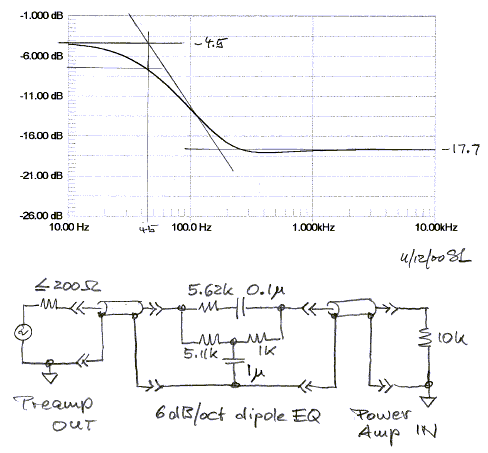 -1.000 dB
-4.5
-6.000 dB
-11.00 dB
-16.00 dB
-17.7
-21.00 dB
-26.00 dB
10.00 Hz
45
100.0 Hz
1.000kHz
10.00 kHz
4/12/00 SL
≤200Ω
5.62k
0.1μ
5.11k
1k
1μ
10k
Preamp OUT
6dB/oct dipole EQ
Power Amp IN